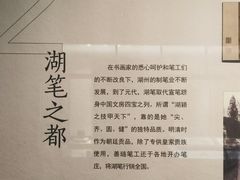 湖笔之都
在书画家的悉心呵护和笔工们
的不断改良下，湖州的制笔业不断
发展，到了元代，湖笔取代宣笔跻
身中国文房四宝之列，所谓“湖颖
之技甲天下”，靠的是她“尖、
齐、圆、健”的独特品质，明清时
作为朝廷贡品，除了专供皇家贵族
使用，善琏笔工还于各地开办笔
庄，将湖笔行销全国。